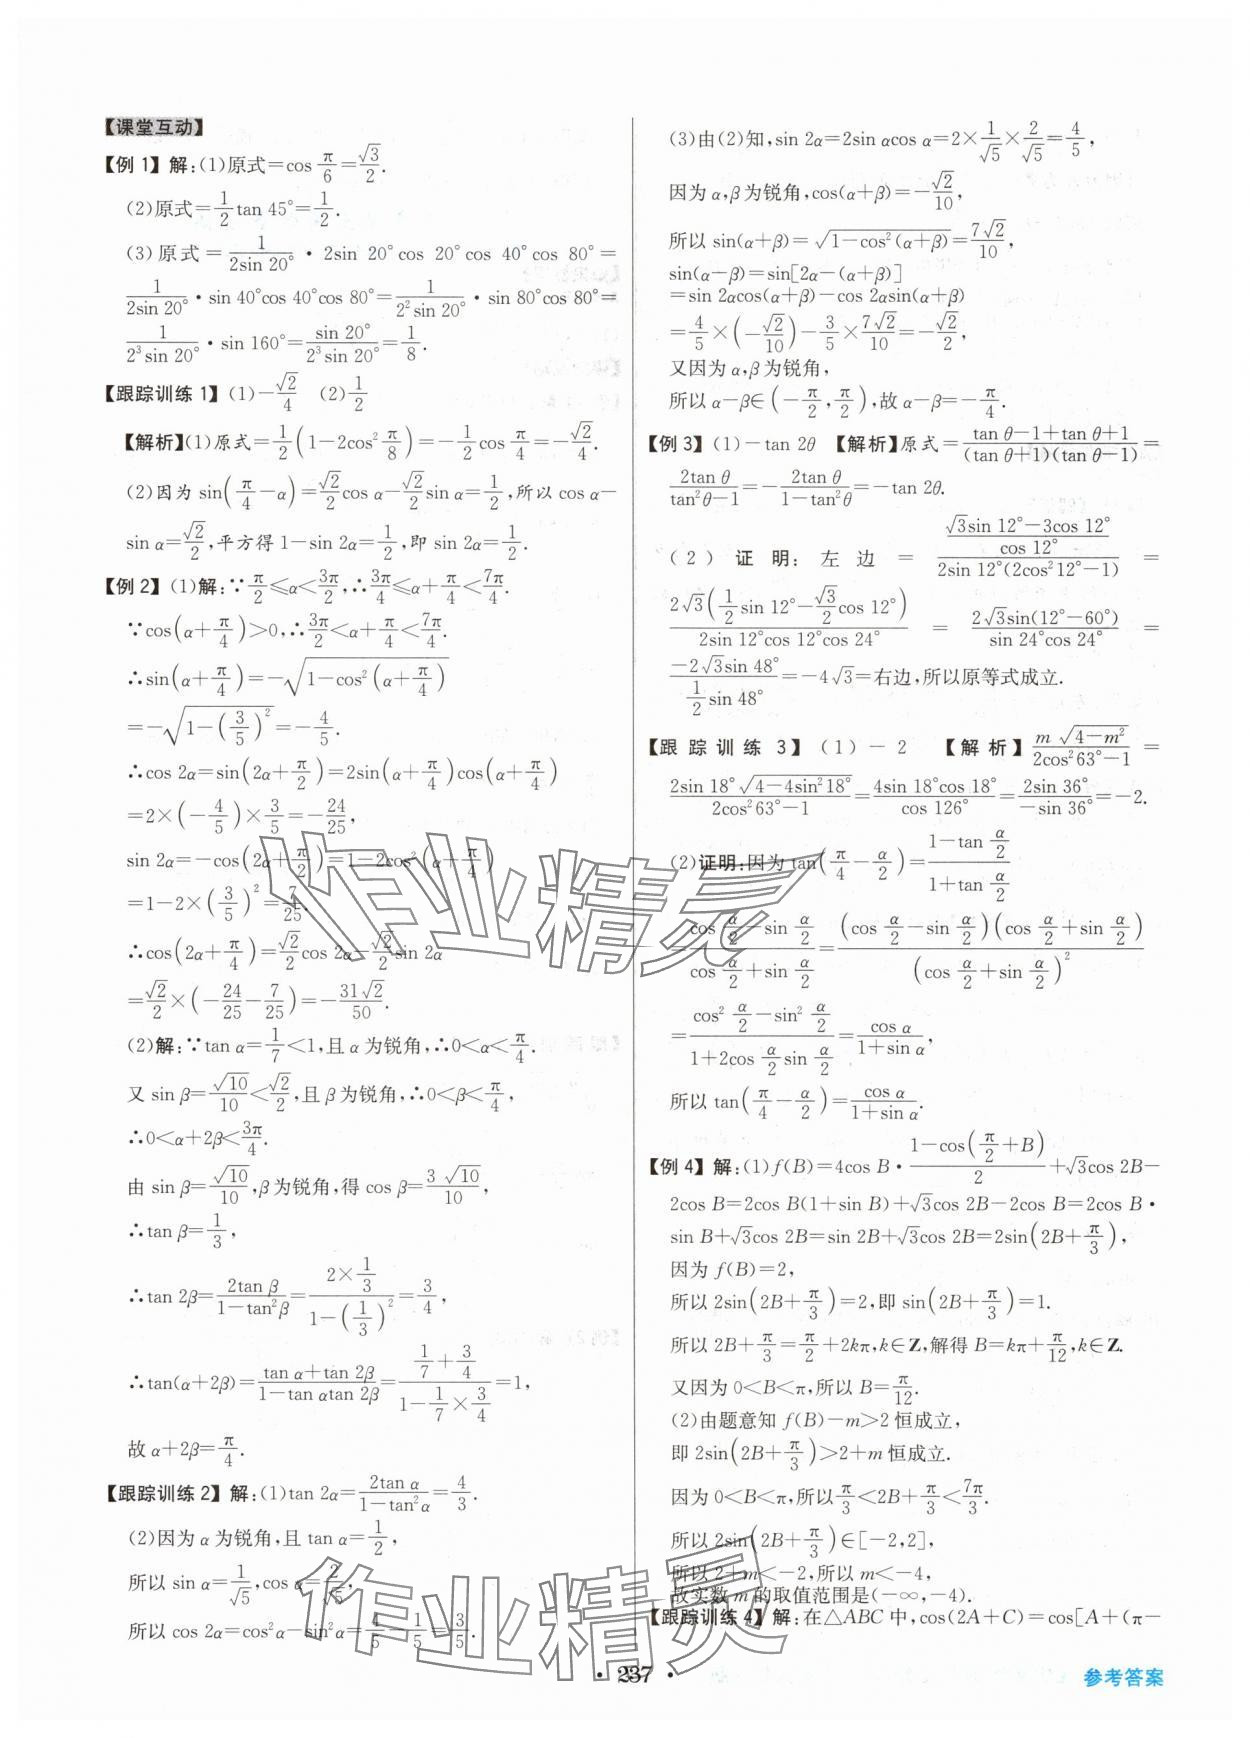 【课堂互动】
【例 1】解:(1)原式=cos π/6=√3/2.
(2)原式=1/2 tan 45°=1/2.
(3)原式=1/(2sin 20°)·2sin 20°cos 20°cos 40°cos 80°=
1/(2sin 20°)·sin 40°cos 40°cos 80°=1/(2²sin 20°)·sin 80°cos 80°=
1/(2³sin 20°)·sin 160°=sin 20°/(2³sin 20°)=1/8.
【跟踪训练 1】(1)-√2/4 (2)1/2
【解析】(1)原式=1/2(1-2cos² π/8)=-1/2 cos π/4=-√2/4.
(2)因为 sin(π/4-α)=√2/2 cos α-√2/2 sin α=1/2,所以 cos α-
sin α=√2/2,平方得 1-sin 2α=1/2,即 sin 2α=1/2.
【例 2】(1)解:∵π/2≤α<3π/2,∴3π/4≤α+π/4<7π/4.
∵cos(α+π/4)>0,∴3π/2<α+π/4<7π/4.
∴sin(α+π/4)=-√(1-cos²(α+π/4))
=-√(1-(3/5)²)=-4/5.
∴cos 2α=sin(2α+π/2)=2sin(α+π/4)cos(α+π/4)
=2×(-4/5)×3/5=-24/25,
sin 2α=-cos(2α+π/2)=1-2cos²(α+π/4)
=1-2×(3/5)²=7/25.
∴cos(2α+π/4)=√2/2 cos 2α-√2/2 sin 2α
=√2/2×(-24/25-7/25)=-31√2/50.
(2)解:∵tan α=1/7<1,且 α 为锐角,∴0<α<π/4.
又 sin β=√10/10<√2/2,且 β 为锐角,∴0<β<π/4,
∴0<α+2β<3π/4.
由 sin β=√10/10,β 为锐角,得 cos β=3√10/10,
∴tan β=1/3,
∴tan 2β=2tan β/(1-tan²β)=(2×1/3)/(1-(1/3)²)=3/4,
∴tan(α+2β)=(tan α+tan 2β)/(1-tan αtan 2β)=(1/7+3/4)/(1-1/7×3/4)=1,
故 α+2β=π/4.
【跟踪训练 2】解:(1)tan 2α=2tan α/(1-tan²α)=4/3.
(2)因为 α 为锐角,且 tan α=1/2,
所以 sin α=1/√5,cos α=2/√5,
所以 cos 2α=cos²α-sin²α=4/5-1/5=3/5.
(3)由(2)知,sin 2α=2sin αcos α=2×1/√5×2/√5=4/5,
因为 α,β 为锐角,cos(α+β)=-√2/10,
所以 sin(α+β)=√(1-cos²(α+β))=7√2/10,
sin(α-β)=sin[2α-(α+β)]
=sin 2αcos(α+β)-cos 2αsin(α+β)
=4/5×(-√2/10)-3/5×7√2/10=-√2/2,
又因为 α,β 为锐角,
所以 α-β∈(-π/2,π/2),故 α-β=-π/4.
【例 3】(1)-tan 2θ 【解析】原式=(tan θ-1+tan θ+1)/((tan θ+1)(tan θ-1))=
2tan θ/(tan²θ-1)=-2tan θ/(1-tan²θ)=-tan 2θ.
(2)证明:左边=((√3sin 12°-3cos 12°)/cos 12°)/(2sin 12°(2cos²12°-1))=
2√3(1/2 sin 12°-√3/2 cos 12°)/(2sin 12°cos 12°cos 24°)=2√3sin(12°-60°)/(sin 24°cos 24°)=
-2√3sin 48°/(1/2 sin 48°)=-4√3=右边,所以原等式成立.
【跟踪训练 3】(1)-2 【解析】m√(4-m²)/(2cos²63°-1)=
2sin 18°√(4-4sin²18°)/(2cos²63°-1)=4sin 18°cos 18°/cos 126°=2sin 36°/(-sin 36°)=-2.
(2)证明:因为 tan(π/4-α/2)=(1-tan α/2)/(1+tan α/2)
=(cos α/2-sin α/2)/(cos α/2+sin α/2)=(cos α/2-sin α/2)(cos α/2+sin α/2)/(cos α/2+sin α/2)²
=(cos² α/2-sin² α/2)/(1+2cos α/2 sin α/2)=cos α/(1+sin α),
所以 tan(π/4-α/2)=cos α/(1+sin α).
【例 4】解:(1)f(B)=4cos B·(1-cos(π/2+B))/2+√3cos 2B-
2cos B=2cos B(1+sin B)+√3cos 2B-2cos B=2cos B·
sin B+√3cos 2B=sin 2B+√3cos 2B=2sin(2B+π/3),
因为 f(B)=2,
所以 2sin(2B+π/3)=2,即 sin(2B+π/3)=1.
所以 2B+π/3=π/2+2kπ,k∈Z,解得 B=kπ+π/12,k∈Z.
又因为 0<B<π,所以 B=π/12.
(2)由题意知 f(B)-m>2 恒成立,
即 2sin(2B+π/3)>2+m 恒成立.
因为 0<B<π,所以π/3<2B+π/3<7π/3.
所以 2sin(2B+π/3)∈[-2,2],
所以 2+m<-2,所以 m<-4,
故实数 m 的取值范围是(-∞,-4).
【跟踪训练 4】解:在△ABC 中,cos(2A+C)=cos[A+(π-
作业精灵
作业精灵
·237·
参考答案